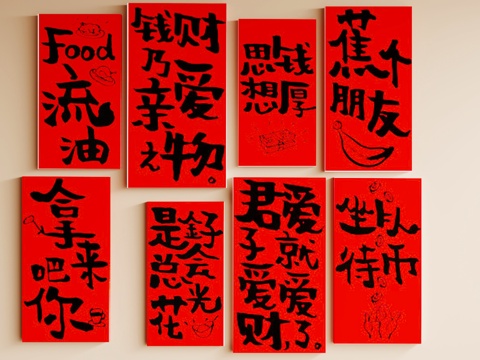 Food
流
油
钱财
乃
亲爱
之物。
思想
钱厚
蕉个
朋友
拿
来
吧
你
是金子
总会
花光
君子爱财,
爱就爱了。
坐以
待币